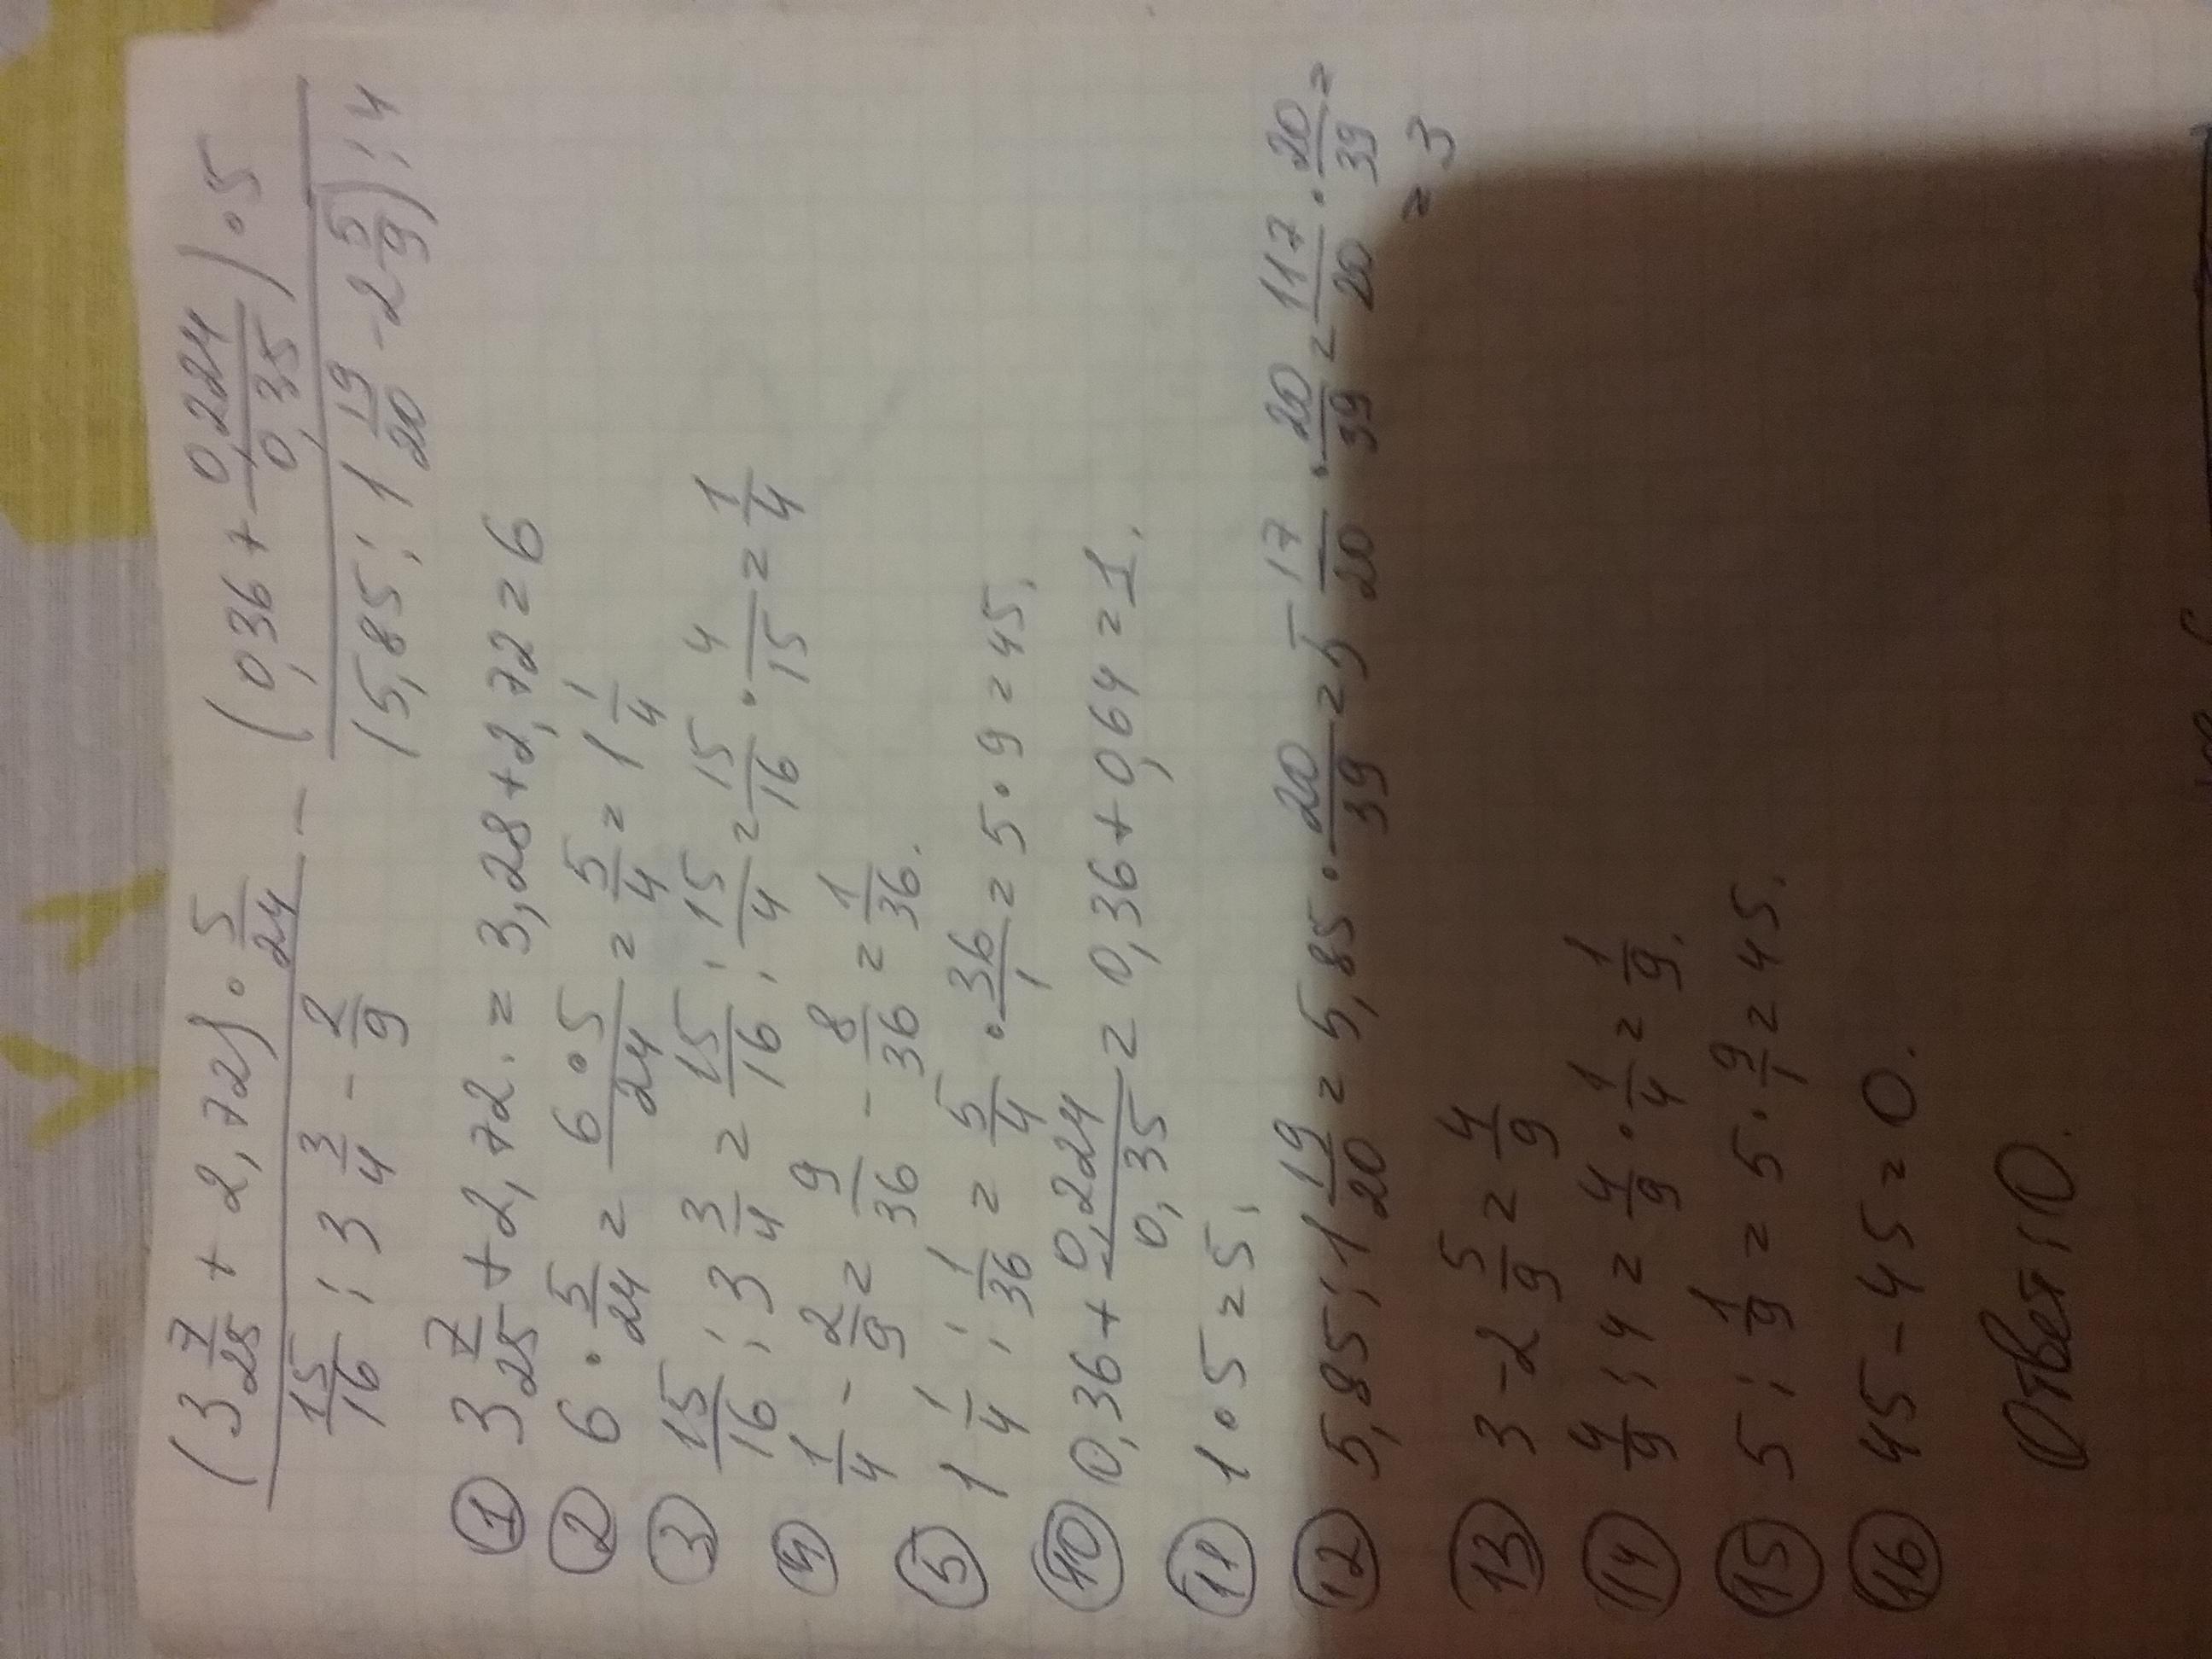 (3 7/25 + 2,72) · 5/24 — (0,36 + 0,224/0,35) · 5
15/16 : 3 3/4 - 2/9 (5,85 : 1 19/20 - 2 5/9) : 4
① 3 7/25 + 2,72. = 3,28 + 2,72 = 6
② 6 · 5/24 = 6 · 5/24 = 5/4 = 1 1/4
③ 15/16 : 3 3/4 = 15/16 : 15/4 = 15/16 · 4/15 = 1/4
④ 1/4 - 2/9 = 9/36 - 8/36 = 1/36.
⑤ 1 1/4 : 1/36 = 5/4 · 36/1 = 5 · 9 = 45.
⑩ 0,36 + 0,224/0,35 = 0,36 + 0,64 = 1.
⑪ 1 · 5 = 5.
⑫ 5,85 : 1 19/20 = 5,85 · 20/39 = 5 17/20 · 20/39 = 117/20 · 20/39 =
= 3
⑬ 3 - 2 5/9 = 4/9
⑭ 4/9 : 4 = 4/9 · 1/4 = 1/9.
⑮ 5 : 1/9 = 5 · 9/1 = 45.
⑯ 45 - 45 = 0.
Ответ: 0.